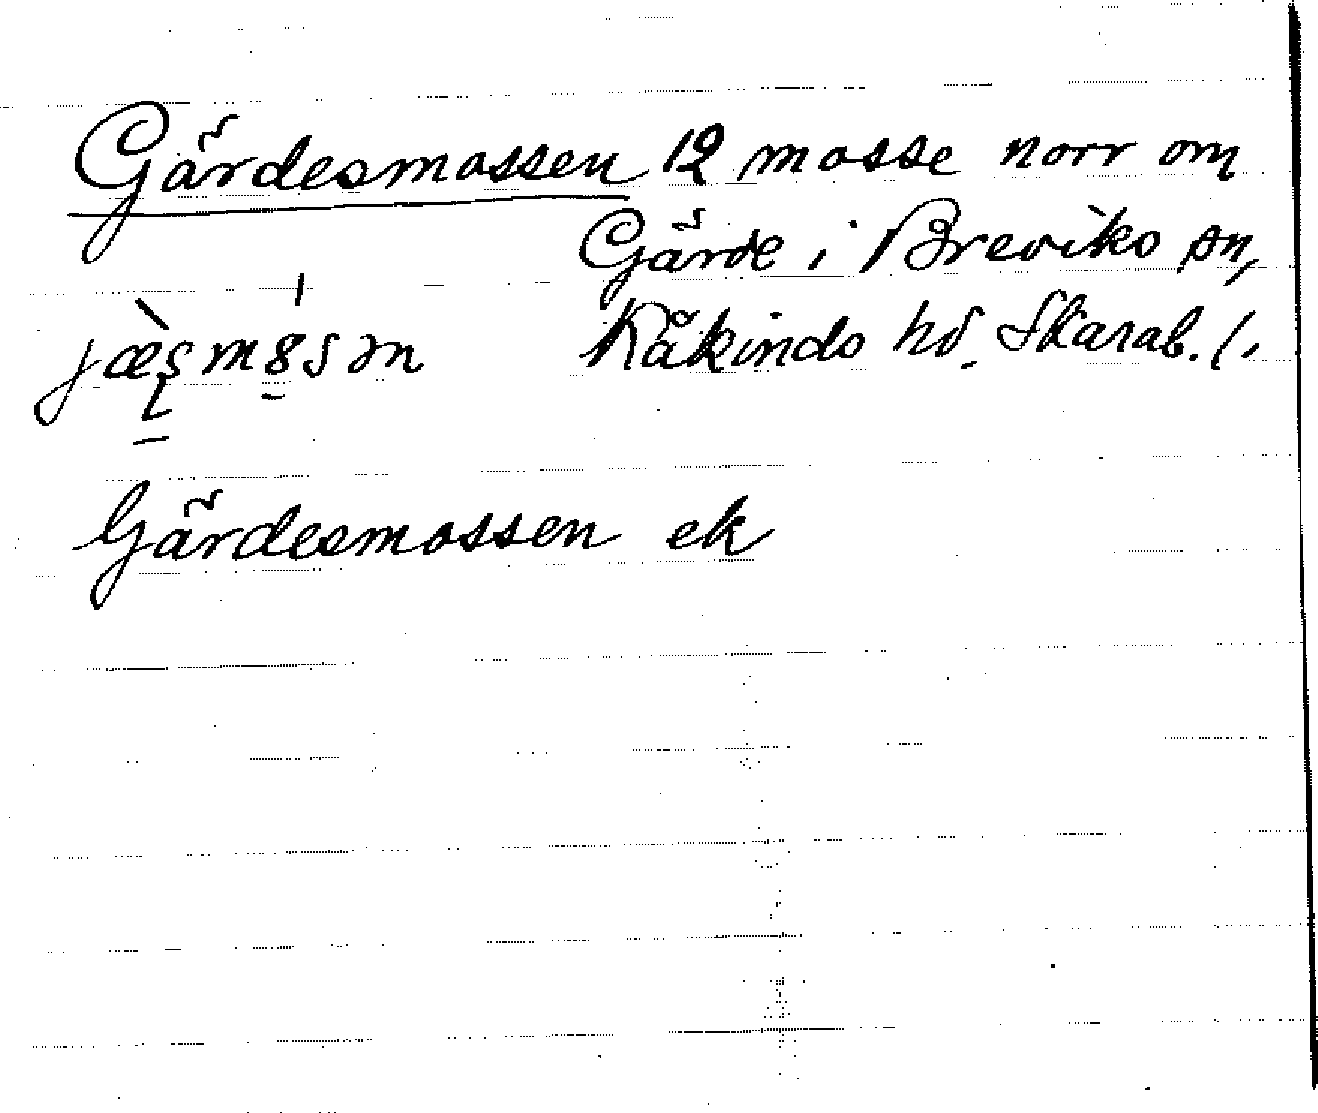 Gärdesmossen 12 mosse norr om
Gärde i Breviks sn,
Kåkinds hd. Skarab. l.
Gärdesmossen ek